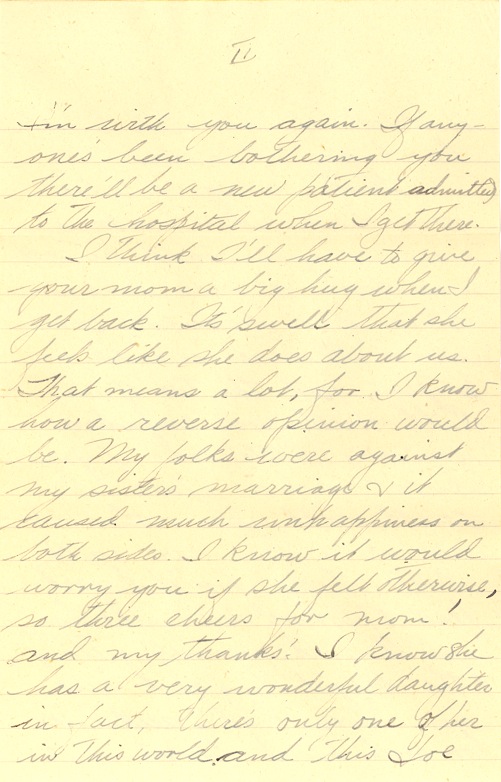 II
I'm with you again. If any-
one's been bothering you
there'll be a new patient admitted
to the hospital when I get there.
I think I'll have to give
your mom a big hug when I
get back. It's swell that she
feels like she does about us.
That means a lot, for I know
how a reverse opinion would
be. My folks were against
my sister's marriage & it
caused much unhappiness on
both sides. I know it would
worry you if she felt otherwise,
so three cheers for mom!
and my thanks! I know she
has a very wonderful daughter
in fact, there's only one of her
in this world and this Joe